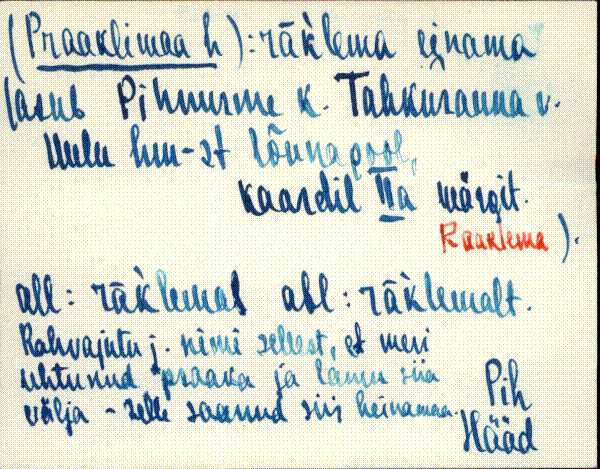 (Praaklimaa h): räk̀lema einama
(asub Pihnurme k. Tahkuranna v.
Uulu hm-st lõunapool,
kaardil IIa märgit.
Raaklema).
all: räk̀lemal abl: räk̀lemalt.
Rahvajutu j. nimi sellest, et meri
uhtunud praaka ja lainu siia
välja - selle saanud siis heinamaa.
Pih
Hääd